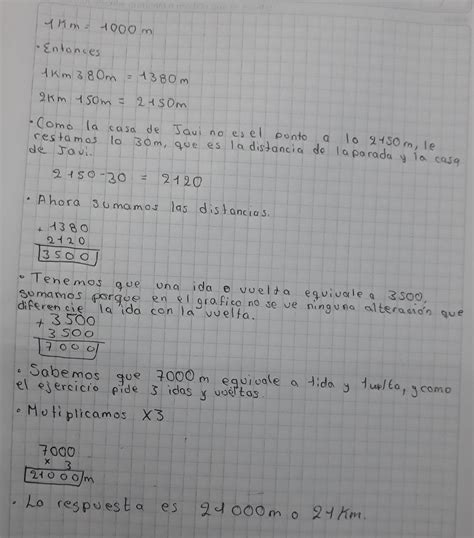 1Km = 1000m
• Entonces
1Km 380m = 1380m
2Km 150m = 2150m
• Como la casa de Javi no es el ponto a lo 2150m, le
restamos lo 30m, que es la distancia de la parada y la casa
de Javi.
2150-30 = 2120
• Ahora sumamos las distancias.
+ 1380
2120
3500
• Tenemos que una ida o vuelta equivale a 3500,
sumamos porque en el grafico no se ve ninguna alteración que
diferencie la ida con la vuelta.
+ 3500
3500
7000
• Sabemos que 7000m equivale a 1ida y 1uelta, y como
el ejercicio pide 3 idas y vueltas.
• Mutiplicamos X3
7000
x 3
21000/m
• Lo respuesta es 21000m o 21Km.